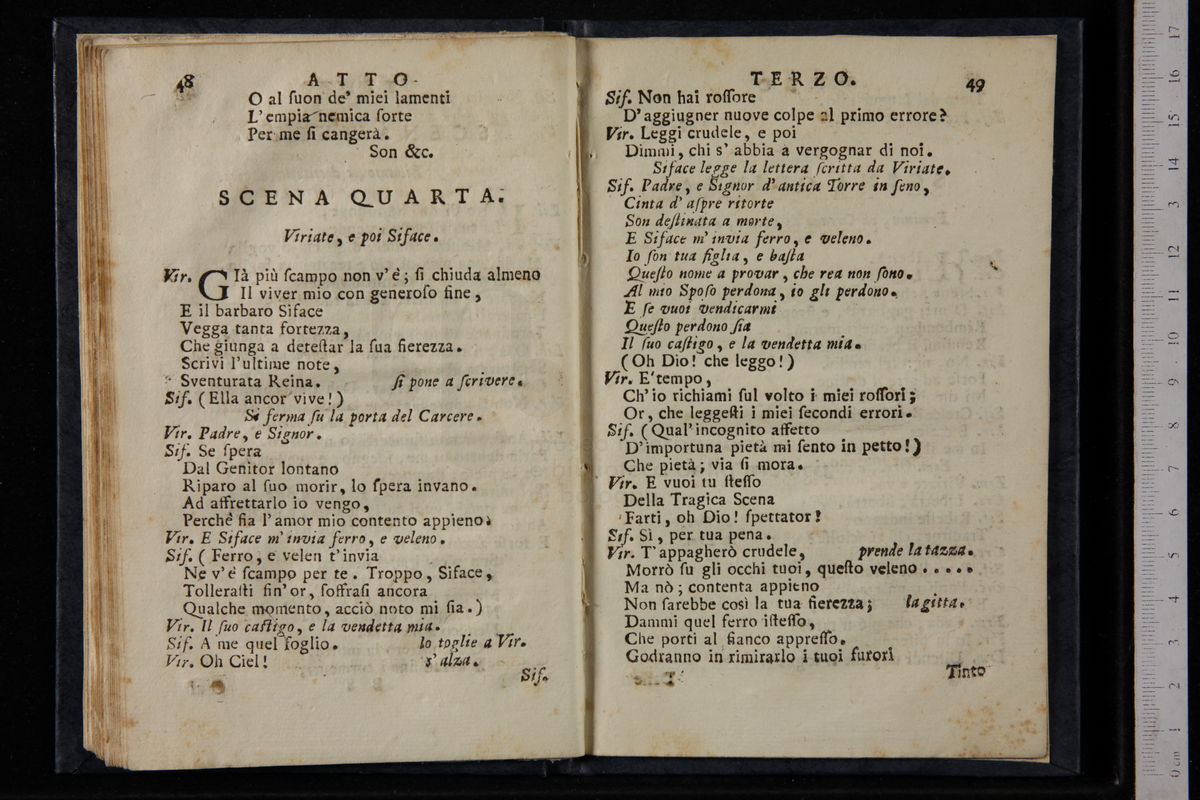 48 ATTO
O al ſuon de' miei lamenti
L'empia nemica ſorte
Per me ſi cangerà.
Son &c.
SCENA QUARTA.
Viriate, e poi Siface.
Vir. GIà più ſcampo non v'è; ſi chiuda almeno
Il viver mio con generoſo fine,
E il barbaro Siface
Vegga tanta fortezza,
Che giunga a deteſtar la ſua fierezza.
Scrivi l'ultime note,
Sventurata Reina. ſi pone a ſcrivere.
Sif. (Ella ancor vive!)
Si ferma ſu la porta del Carcere.
Vir. Padre, e Signor.
Sif. Se ſpera
Dal Genitor lontano
Riparo al ſuo morir, lo ſpera invano.
Ad affrettarlo io vengo,
Perchè ſia l'amor mio contento appieno.
Vir. E Siface m'invia ferro, e veleno.
Sif. (Ferro, e velen t'invia
Ne v'è ſcampo per te. Troppo, Siface,
Tolleraſti fin'or, ſoffraſi ancora
Qualche momento, acciò noto mi ſia.)
Vir. Il ſuo caſtigo, e la vendetta mia.
Sif. A me quel foglio. lo toglie a Vir.
Vir. Oh Ciel! s'alza.
Sif.
TERZO. 49
Sif. Non hai roſſore
D'aggiugner nuove colpe al primo errore?
Vir. Leggi crudele, e poi
Dimmi, chi s'abbia a vergognar di noi.
Siface legge la lettera ſcritta da Viriate.
Sif. Padre, e Signor d'antica Torre in ſeno,
Cinta d'aſpre ritorte
Son deſtinata a morte,
E Siface m'invia ferro, e veleno.
Io ſon tua figlia, e baſta
Queſto nome a provar, che rea non ſono.
Al mio Spoſo perdona, io gli perdono.
E ſe vuoi vendicarmi
Queſto perdono ſia
Il ſuo caſtigo, e la vendetta mia.
(Oh Dio! che leggo!)
Vir. E'tempo,
Ch'io richiami ſul volto i miei roſſori;
Or, che leggeſti i miei ſecondi errori.
Sif. (Qual'incognito affetto
D'importuna pietà mi ſento in petto!)
Che pietà; via ſi mora.
Vir. E vuoi tu ſteſſo
Della Tragica Scena
Farti, oh Dio! ſpettator!
Sif. Sì, per tua pena.
Vir. T'appagherò crudele, prende la tazza.
Morrò ſu gli occhi tuoi, queſto veleno.....
Ma nò; contenta appieno
Non ſarebbe così la tua fierezza; la gitta.
Dammi quel ferro iſteſſo,
Che porti al fianco appreſſo.
Godranno in rimirarlo i tuoi furori
Tinto
0 cm 1 2 3 4 5 6 7 8 9 10 11 12 13 14 15 16 17